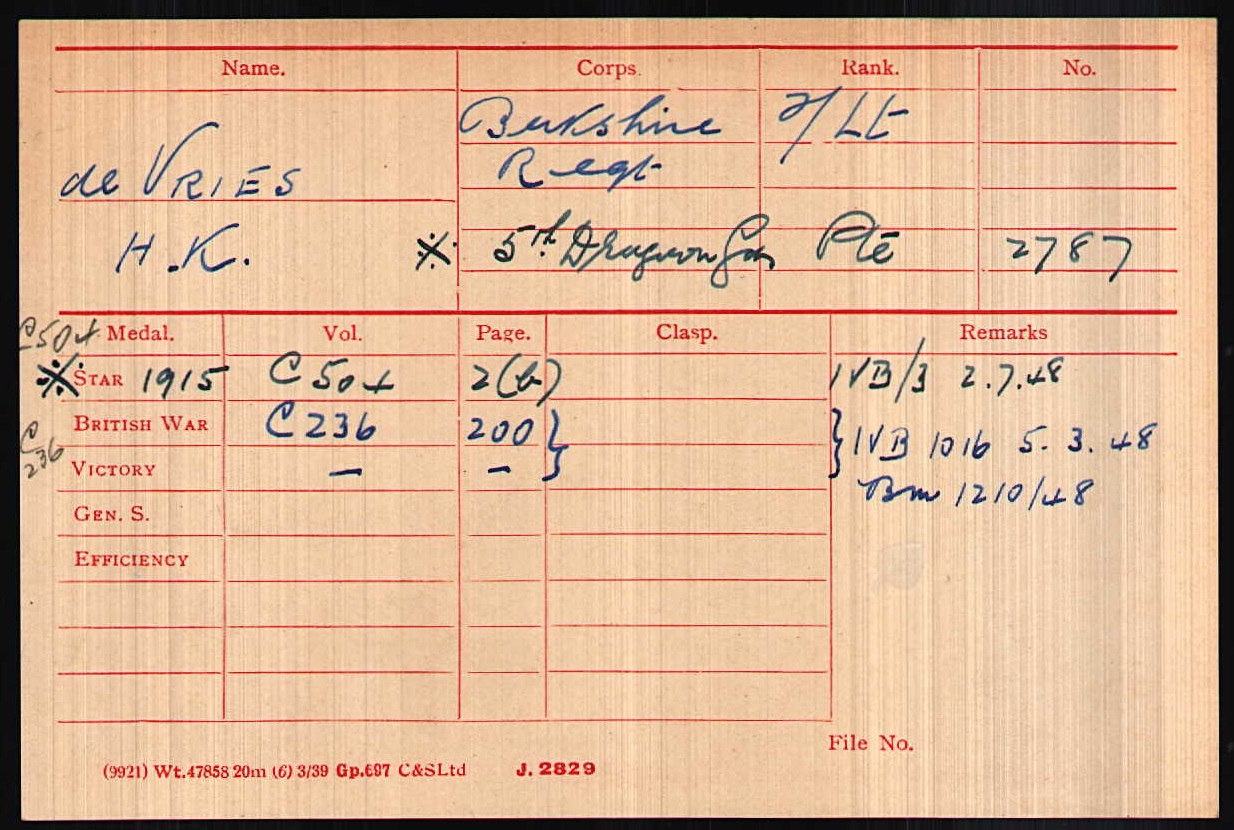 Name. Corps. Rank. No.
de VRIES Berkshire Regt 2/Lt
H.K. ※ 5th Dragoon Gds Pte 2787
C504 Medal. Vol. Page. Clasp. Remarks
※ STAR 1915 C 504 2(b) IVB/3 2.7.48
C 236 BRITISH WAR C 236 200 } } IVB 1016 5.3.48
VICTORY – –
Bm 1210/48
GEN. S.
EFFICIENCY
File No.
(9921) Wt.47858 20m (6) 3/39 Gp.697 C&SLtd J. 2829